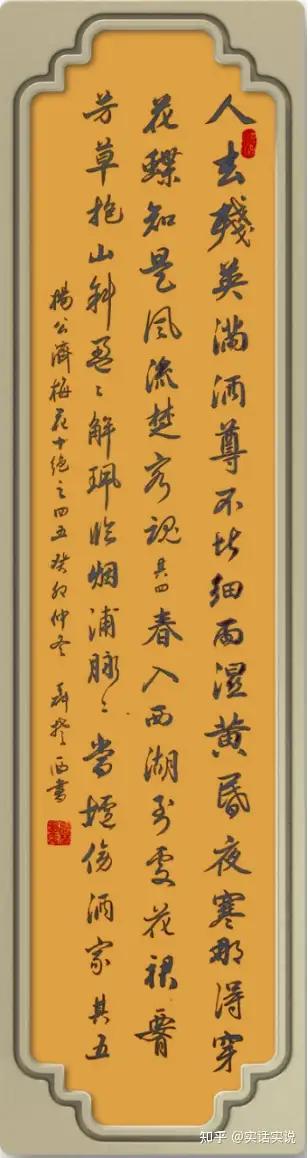 人去殘英满酒尊不堪细雨湿黄昏夜寒那得穿
花蝶知是风流楚客魂其四春入西湖到处花裙腰
芳草抱山斜盈々解珮临烟浦脉々當壚傍酒家其五
楊公濟梅花十绝之四五癸卯仲冬 书
知乎 @实话实说